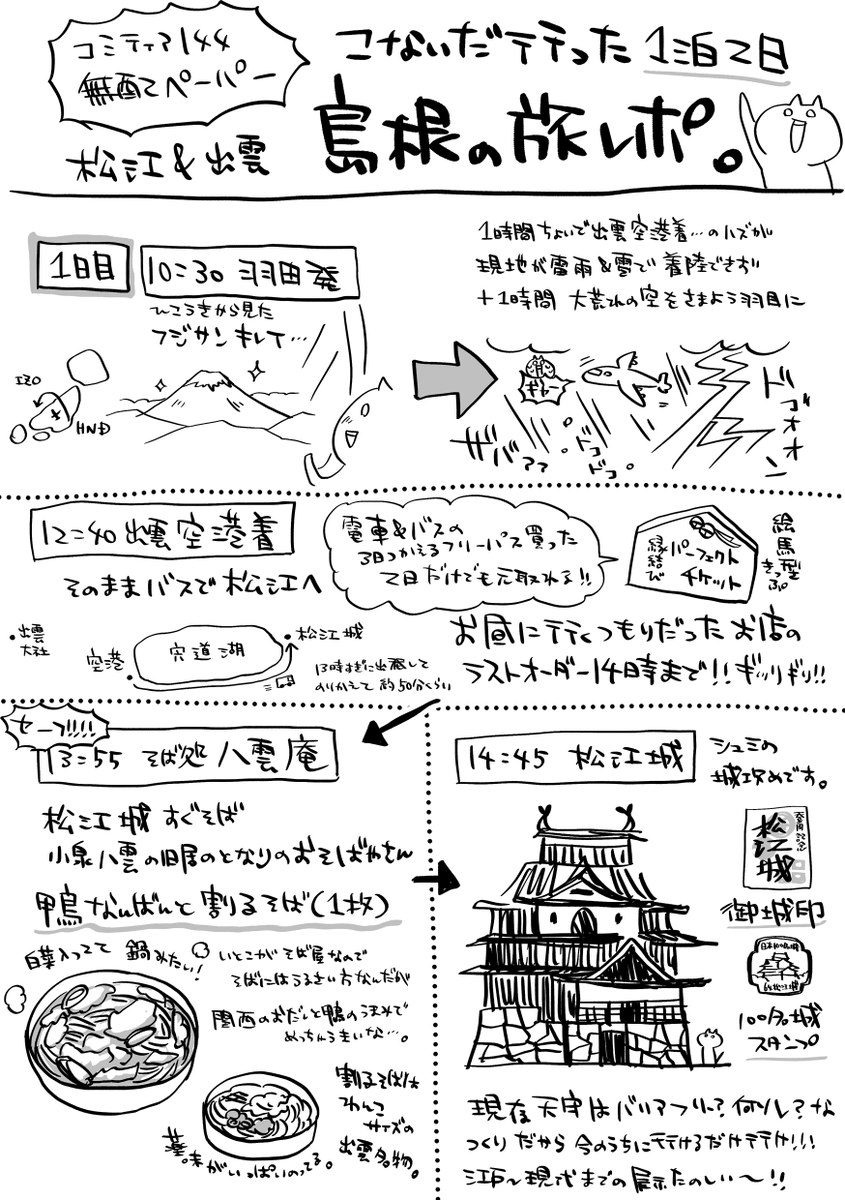 コミティア144
無配ペーパー
こないだ行った1泊2日
島根の旅レポ。
松江&出雲
1日目
10:30 羽田発
ひこうきから見た
フジサンキレイ…
IZO
HND
1時間ちょいで出雲空港着…のハズが
現地が雷雨&雹で着陸できず
+1時間 大荒れの空をさまよう羽目に
ギャー
ザバァァ
ドコドコ
ドゴオオン
12:40 出雲空港着
そのままバスで松江へ
電車&バスの
3日つかえるフリーパス買った
2日だけでも元取れる!!
縁結び
パーフェクト
チケット
絵馬型
きっぷ
出雲
大社
空港
宍道湖
松江城
13時すぎに出発して
のりかえて約50分くらい
お昼に行くつもりだったお店の
ラストオーダー14時まで!!ギッリギリ!!
セーフ!!!!
13:55 そば処 八雲庵
松江城すぐそば
小泉八雲の旧居のとなりのおそばやさん
鴨なんばんと割るそば(1枚)
白菜入ってて鍋みたい!
いとこがそば屋なので
そばにはうるさい方なんだが
関西のおだしと鴨のうまみで
めっちゃうまいな…。
割るそばは
わんこ
サイズの
出雲名物。
薬味がいっぱいのってる。
14:45 松江城
シュミの
城攻めです。
登閣記念
松江城
御城印
日本100名城
100名城
スタンプ
現在天守はバリアフリー?何ソレ?な
つくりだから今のうちに行けるだけ行け!!!
江戸〜現代までの展示たのしい〜!!